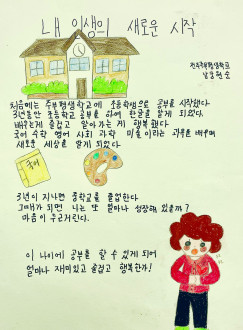 내 인생의 새로운 시작
전주주부평생학교
남궁원순
처음에는 주부평생학교에 초등학생으로 공부를 시작했다.
3년동안 초등학교 공부를 하여 한글을 알게 되었다.
배우는게 즐겁고 알아가는 게 행복했다
국어 수학 영어 사회 과학 미술 이라는 과목을 배우며
새로운 세상을 알게 되었다.
국어
3년이 지나면 중학교를 졸업한다
그때가 되면 나는 또 얼마나 성장해 있을까?
마음이 두근거린다.
이 나이에 공부를 할 수 있게 되어
얼마나 재미있고 즐겁고 행복한가!